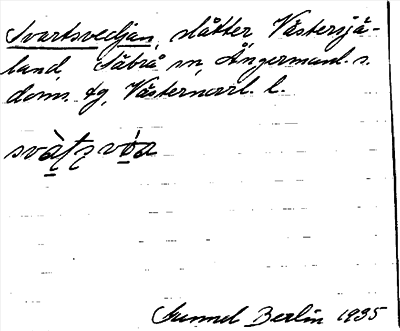 Svartsvedjan, slåtter Västersjä-
land, Säbrå sn, Ångermanl. s.
doms. tg, Västernorrl. l.
svàṭẓvòa
Gunnel Berlin 1935